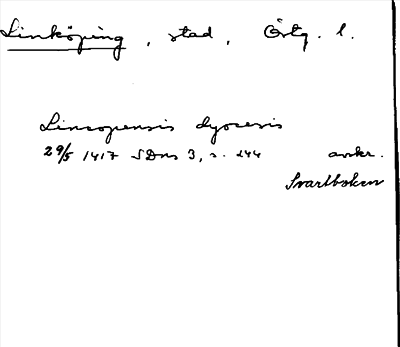 Linköping, stad, Östg. l.
Lincopensis dyocesis
29/5 1417 SDns 3, s. 244 avskr.
Svartboken